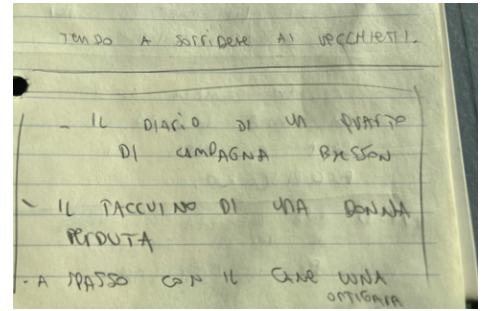 TENDO A SORRIDERE AI VECCHIETTI.
- IL DIARIO DI UN
DI CAMPAGNA BRESSON
- IL TACCUINO DI UNA DONNA
PERDUTA
- A SPASSO CON IL CANE LUNA
ORTIGARA